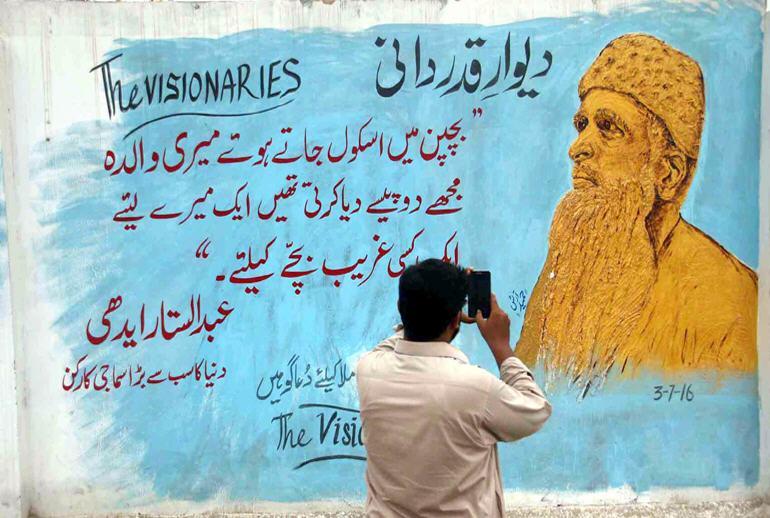 The VISIONARIES
دیوارِ قدردانی
"بچپن میں اسکول جاتے ہوئے میری والدہ
مجھے دو پیسے دیا کرتی تھیں ایک میرے لیئے
ایک کسی غریب بچّے کیلئے۔"
عبدالستار ایدھی
دنیا کا سب سے بڑا سماجی کارکن
کیلئے دُعا گو ہیں
The
3-7-16